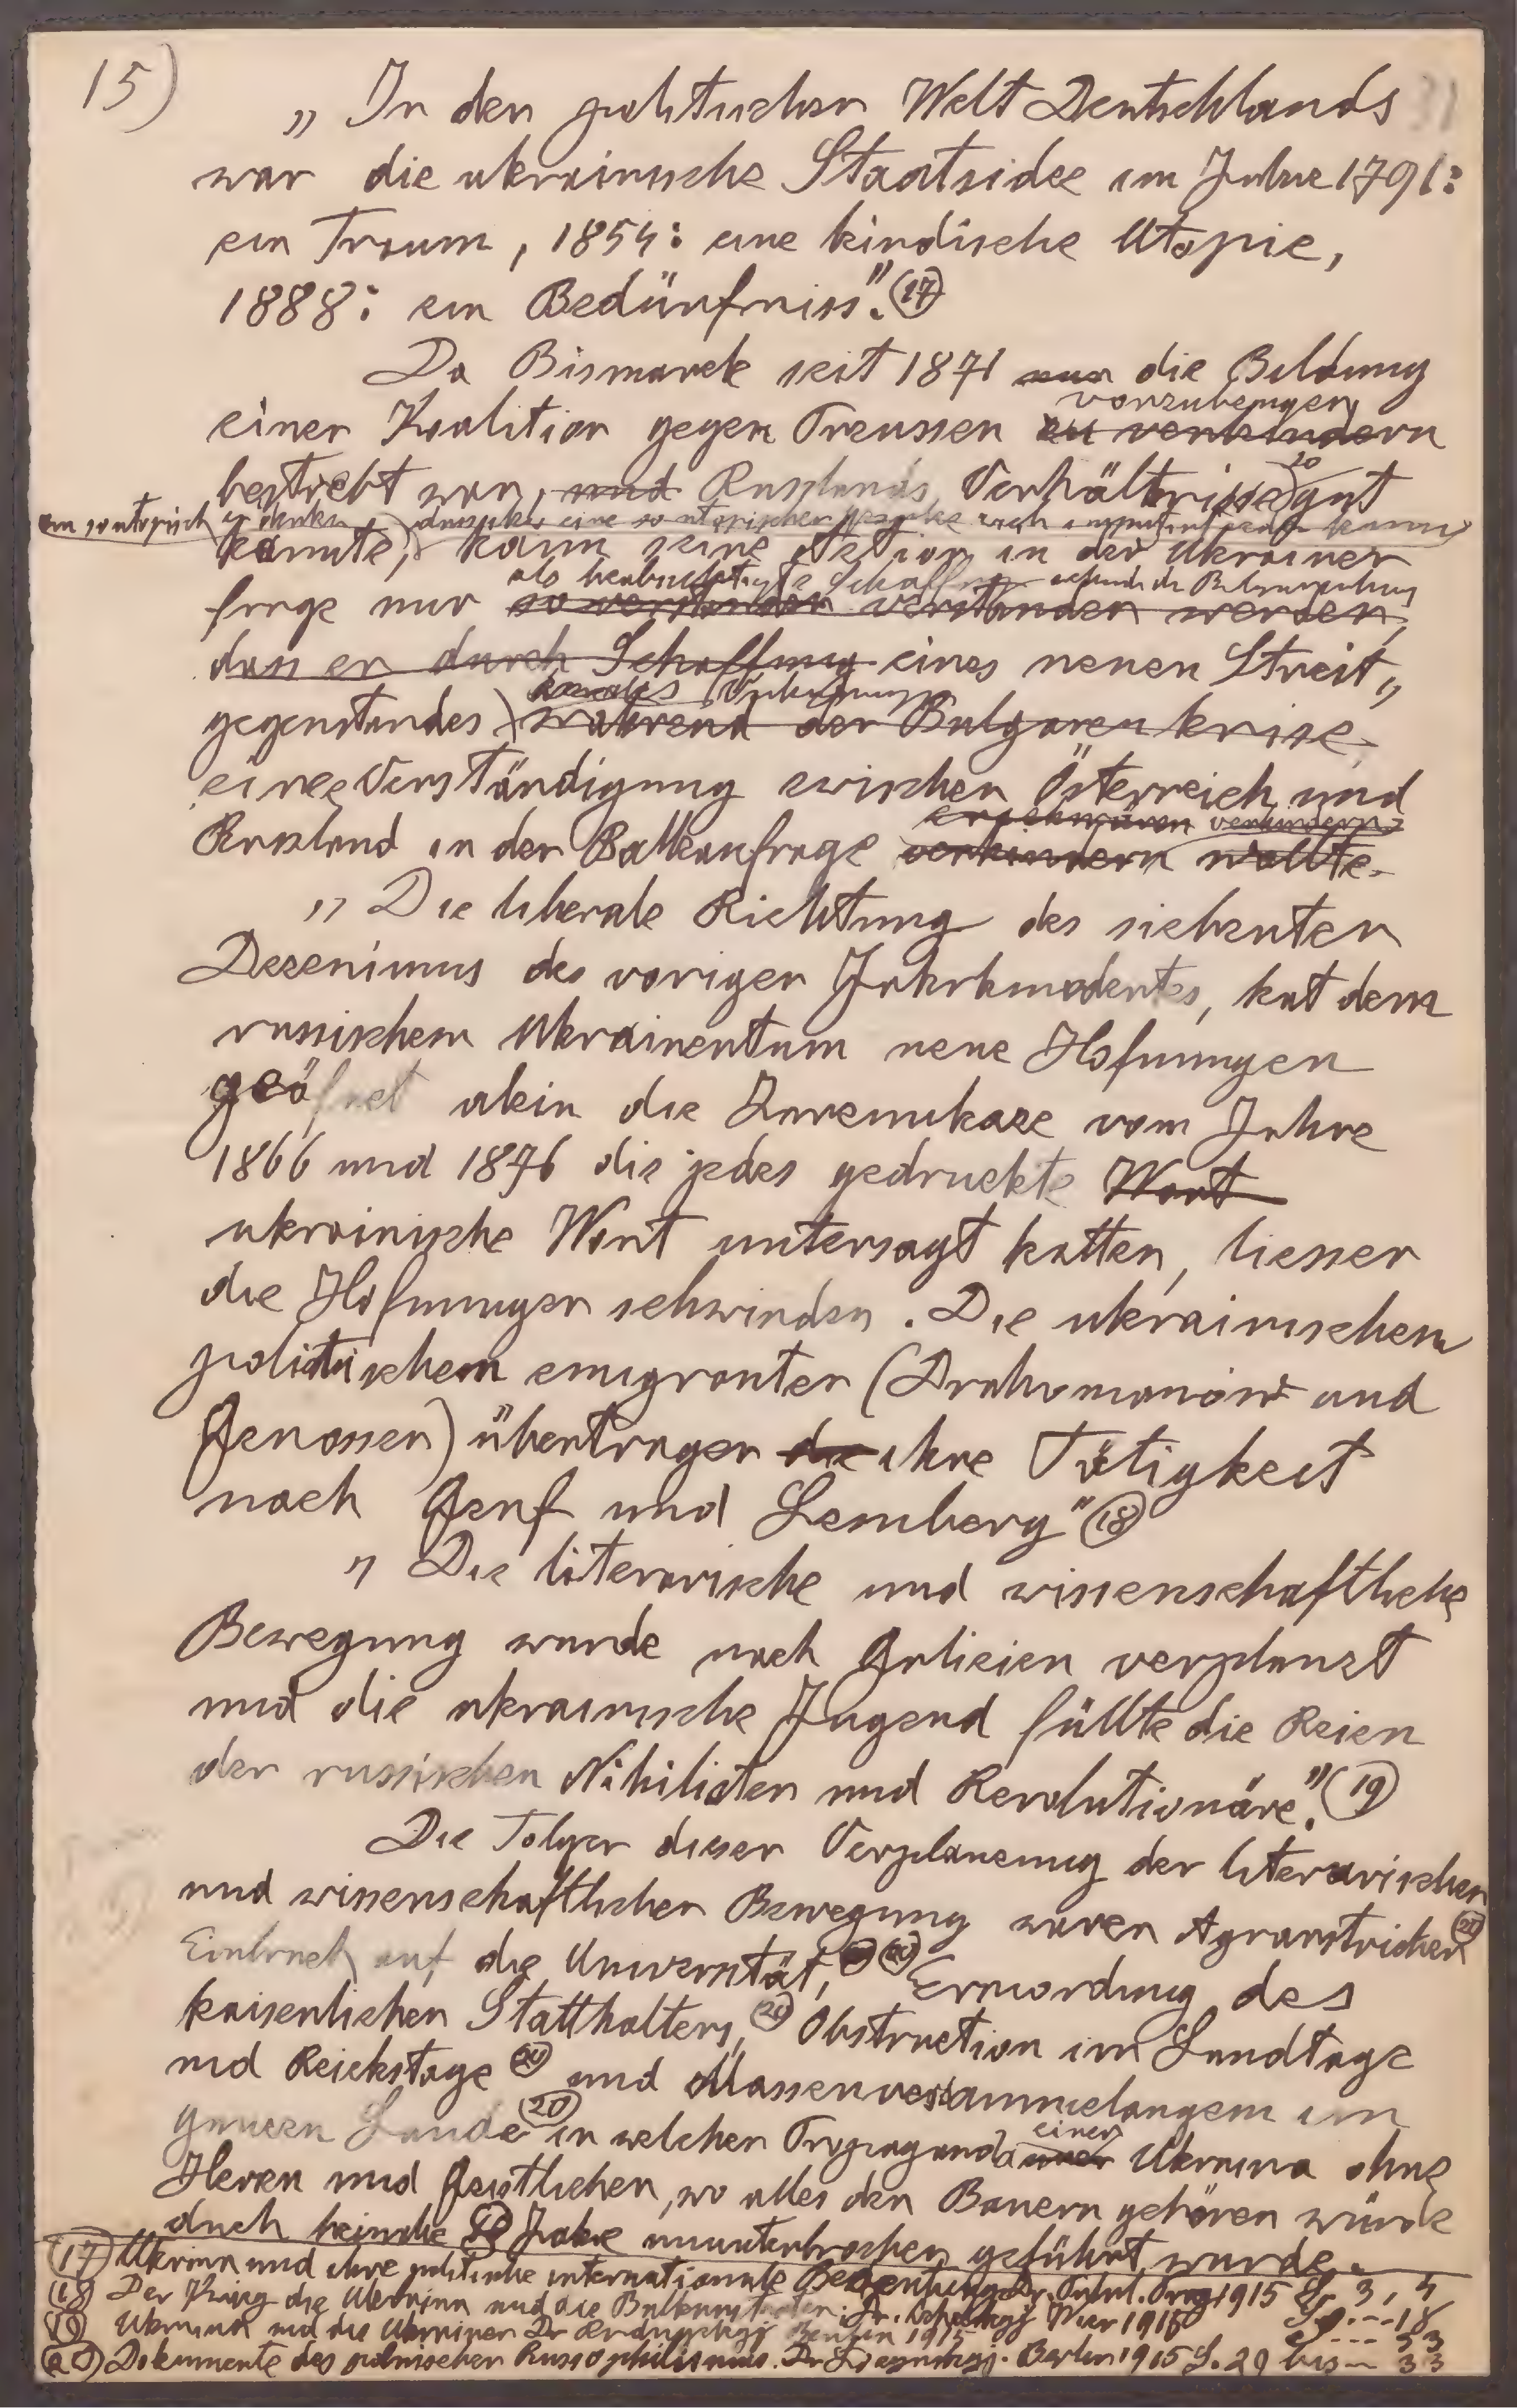 15)
„ In der politischen Welt Deutschlands 31
war die ukrainische Staatsidee im Jahre 1791:
ein Traum, 1854: eine kindische Utopie,
1888: ein Bedürfniss". (17)
Da Bismarck seit 1871 nur die Bildung
vorzubeugen
einer Koalition gegen Preussen zu verhindern
bestrebt war, und Russlands Verhältnisse so gut
kannte, kann seine Aktion in der Ukrainer
frage nur so verstanden verstanden werden,
dass er durch Schaffung eines neuen Streit„
gegenstandes während der Bulgarenkrise
eine Verständigung zwischen Österreich und
erschweren verhindern
Russland in der Balkanfrage verhindern wollte.
„ Die liberale Richtung des siebenten
Dezenimus des vorigen Jahrhunderts, hat dem
russischem Ukrainentum neue Hofnungen
geöfnet alein die Zarenukaze vom Jahre
1866 und 1876 die jedes gedruckte Wort
ukrainische Wort untersagt hatten, liessen
die Hofnungen schwinden. Die ukrainischen
politischem emigranten (Drahomanów und
Genossen) übertragen die ihre Tätigkeit
nach Genf und Lemberg" (18)
„ Die literarische und wissenschaftliche
Bewegung wurde nach Galizien verplanzt
und die ukrainische Jugend füllte die Reien
der russischen Nihilisten und Revolutionäre." (19)
Die Folgen dieser Verplanzung der literarischen
und wissenschaftlichen Bewegung waren Agrarstriken (20)
Einbruch auf die Universität, (20) Ermordung des
kaiserlichen Statthalters, (20) Obstruction im Landtage
und Reichstage (20) und Massenversammelungen im
ganzen Lande (20) in welchen Propaganda einer Ukraina ohne
Heren und Geistlichen, wo alles den Bauern gehören würde
duch beinahe Jahre ununterbrochen geführt wurde.
(17) Ukraina und ihre politische internationale Bedeutung Dr. Prag 1915 S. 3, 4
(18) Der Krieg die Ukraina und die Balkanstaaten. Dr. Wien 1915 S. 18
(19) Ukraina und die Ukrainer Dr Berlin 1915 S. 33
(20) Dokumente des polnischen Russophilismus. Dr Berlin 1915 S. 29 bis 33